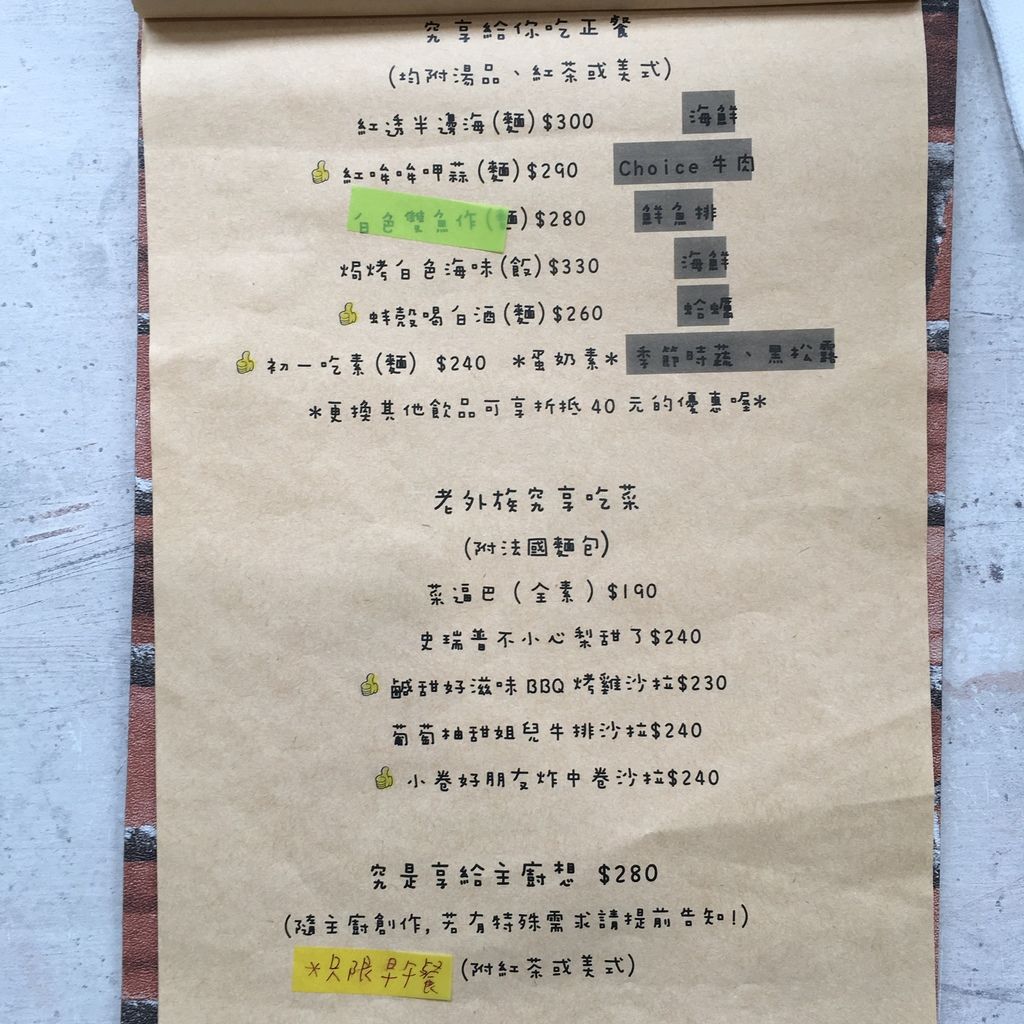 究享給你吃正餐
(均附湯品、紅茶或美式)
紅透半邊海(麵)$300 海鮮
紅哞哞呷蒜(麵)$290 Choice 牛肉
白色雙魚作(麵)$280 鮮魚排
焗烤白色海味(飯)$330 海鮮
蚌殼喝白酒(麵)$260 蛤蠣
初一吃素(麵) $240 *蛋奶素* 季節時蔬、黑松露
*更換其他飲品可享折抵 40 元的優惠喔*
老外族究享吃菜
(附法國麵包)
菜逼巴(全素)$190
史瑞普不小心梨甜了$240
鹹甜好滋味 BBQ 烤雞沙拉$230
葡萄柚甜姐兒牛排沙拉$240
小卷好朋友炸中卷沙拉$240
究是享給主廚想 $280
(隨主廚創作,若有特殊需求請提前告知!)
*只限早午餐 (附紅茶或美式)